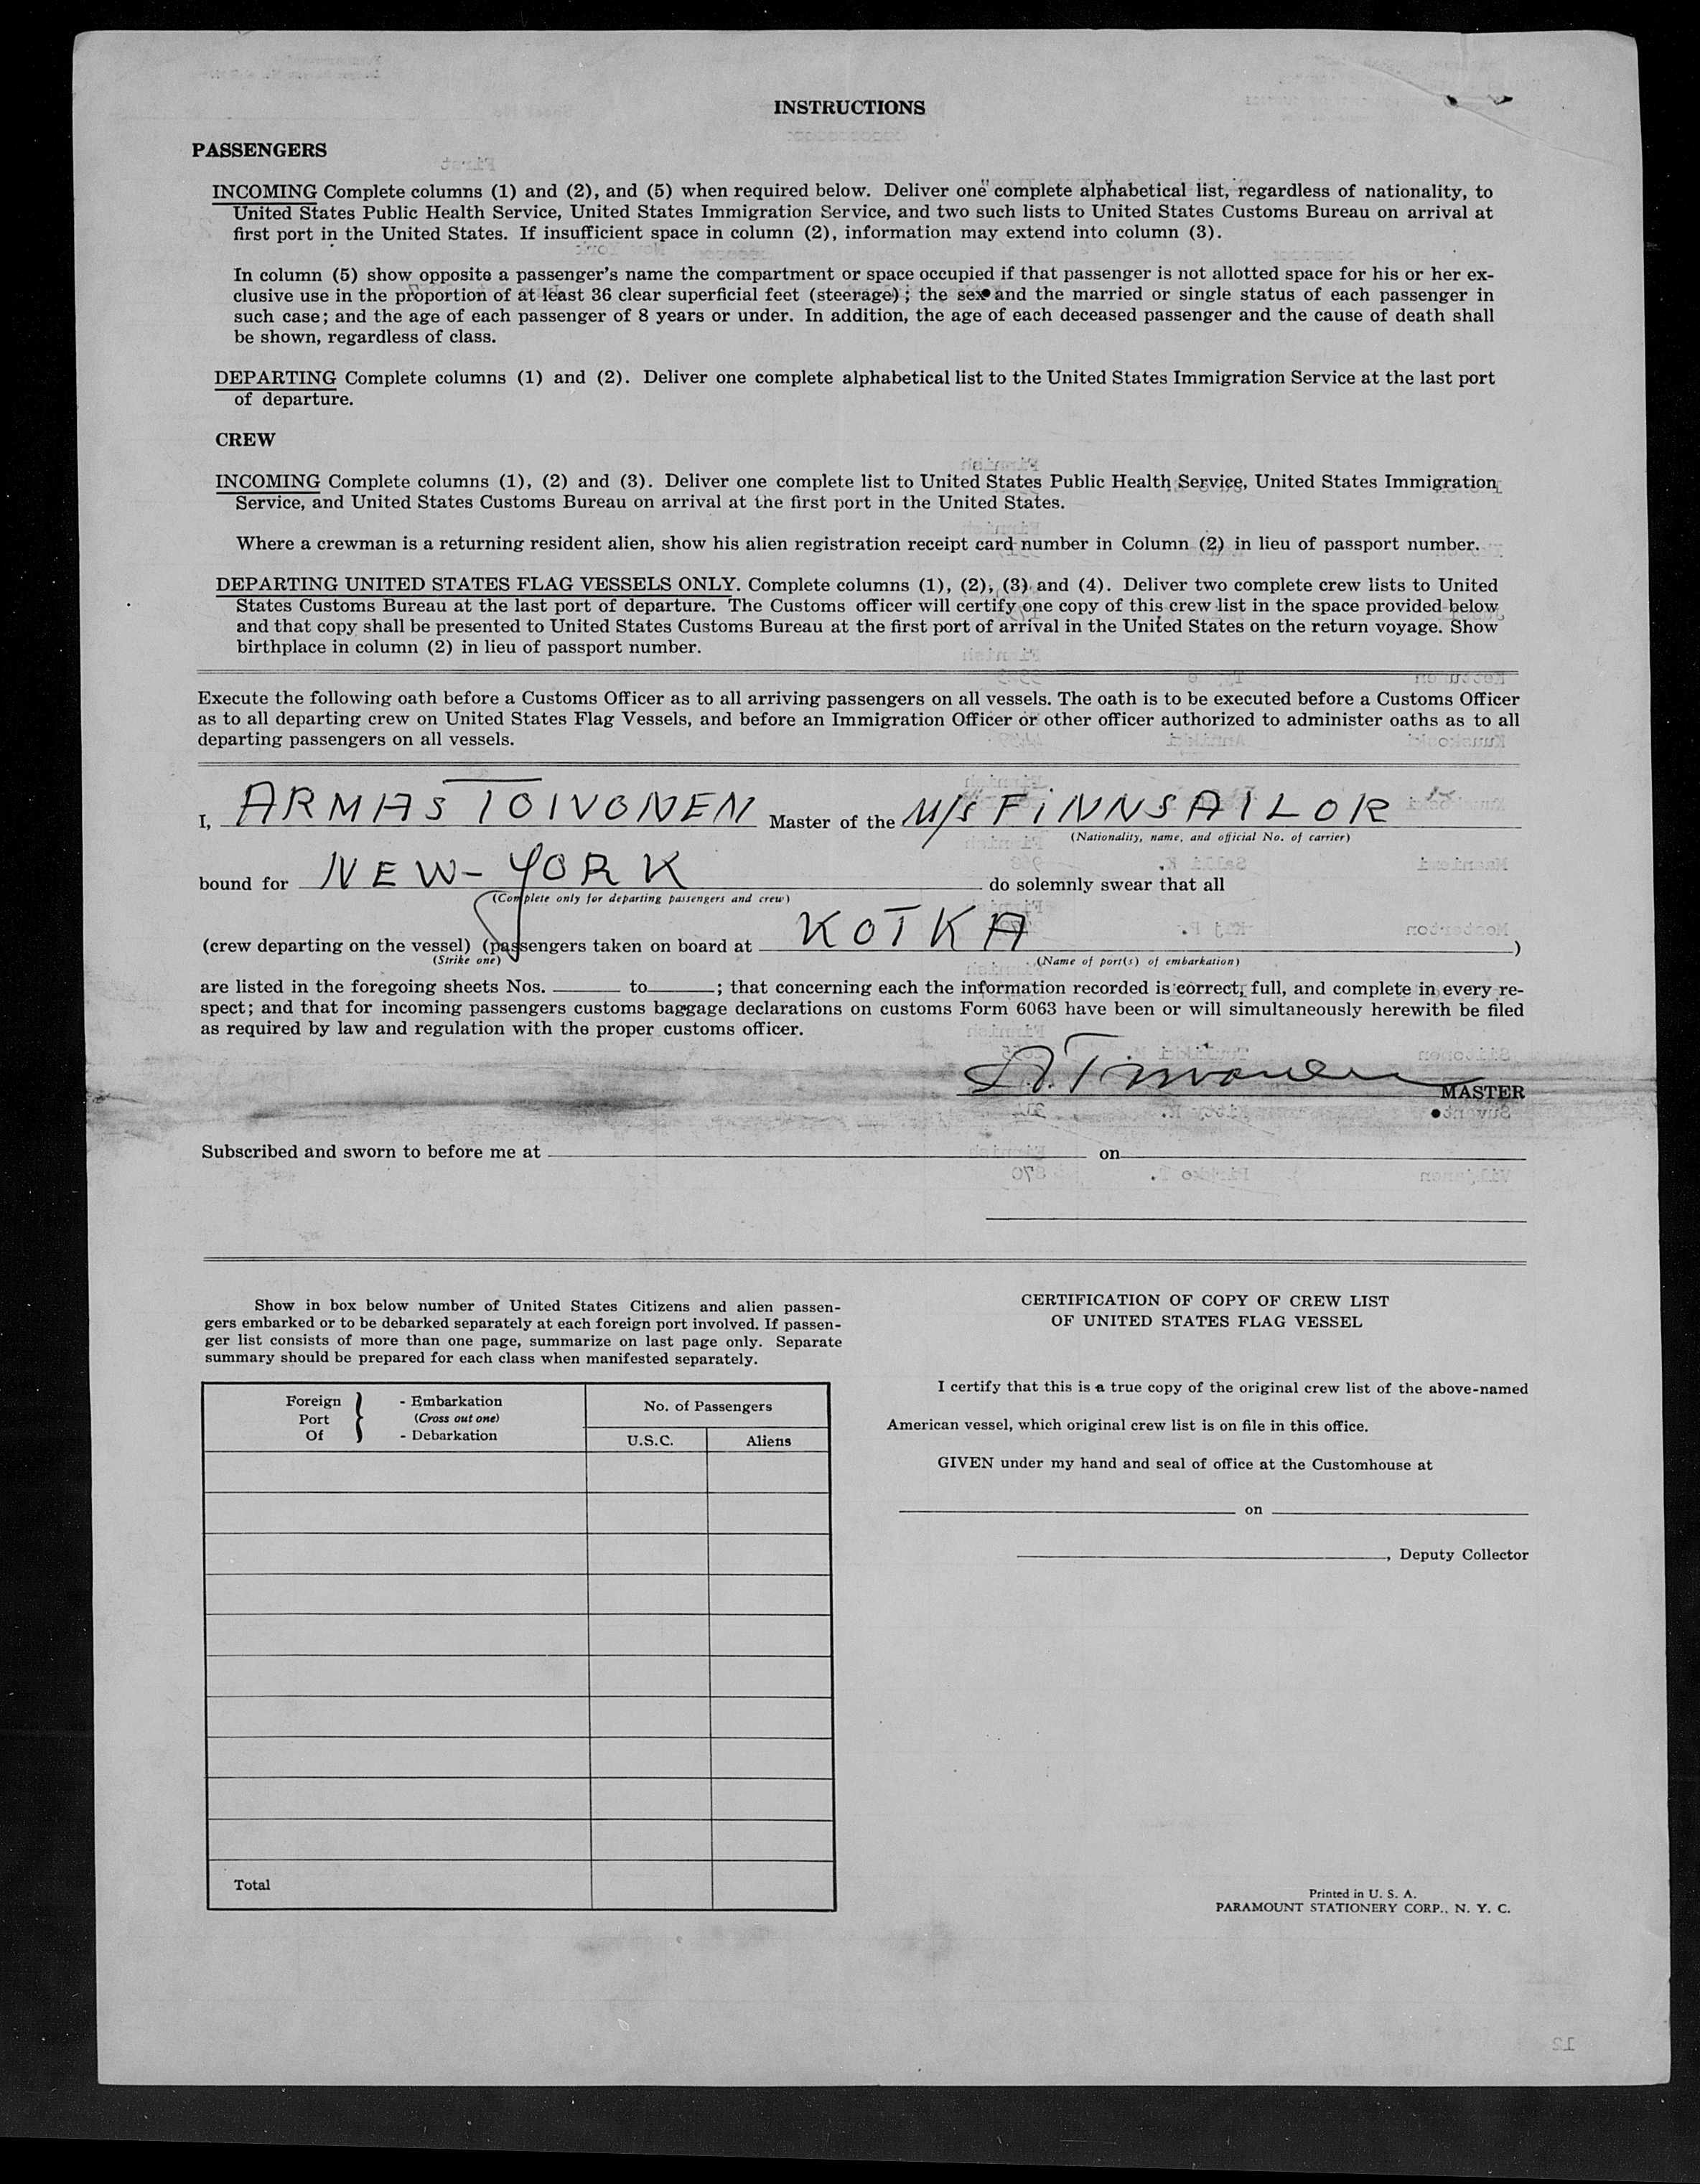 INSTRUCTIONS
PASSENGERS
INCOMING Complete columns (1) and (2), and (5) when required below. Deliver one complete alphabetical list, regardless of nationality, to
United States Public Health Service, United States Immigration Service, and two such lists to United States Customs Bureau on arrival at
first port in the United States. If insufficient space in column (2), information may extend into column (3).
In column (5) show opposite a passenger's name the compartment or space occupied if that passenger is not allotted space for his or her ex-
clusive use in the proportion of at least 36 clear superficial feet (steerage); the sex and the married or single status of each passenger in
such case; and the age of each passenger of 8 years or under. In addition, the age of each deceased passenger and the cause of death shall
be shown, regardless of class.
DEPARTING Complete columns (1) and (2). Deliver one complete alphabetical list to the United States Immigration Service at the last port
of departure.
CREW
INCOMING Complete columns (1), (2) and (3). Deliver one complete list to United States Public Health Service, United States Immigration
Service, and United States Customs Bureau on arrival at the first port in the United States.
Where a crewman is a returning resident alien, show his alien registration receipt card number in Column (2) in lieu of passport number.
DEPARTING UNITED STATES FLAG VESSELS ONLY. Complete columns (1), (2), (3) and (4). Deliver two complete crew lists to United
States Customs Bureau at the last port of departure. The Customs officer will certify one copy of this crew list in the space provided below
and that copy shall be presented to United States Customs Bureau at the first port of arrival in the United States on the return voyage. Show
birthplace in column (2) in lieu of passport number.
Execute the following oath before a Customs Officer as to all arriving passengers on all vessels. The oath is to be executed before a Customs Officer
as to all departing crew on United States Flag Vessels, and before an Immigration Officer or other officer authorized to administer oaths as to all
departing passengers on all vessels.
I, ARMAS TOIVONEN Master of the M/S FINNSAILOR
(Nationality, name, and official No. of carrier)
bound for NEW-YORK do solemnly swear that all
(Complete only for departing passengers and crew)
(crew departing on the vessel) (passengers taken on board at KOTKA )
(Strike one) (Name of port(s) of embarkation)
are listed in the foregoing sheets Nos. to ; that concerning each the information recorded is correct, full, and complete in every re-
spect; and that for incoming passengers customs baggage declarations on customs Form 6063 have been or will simultaneously herewith be filed
as required by law and regulation with the proper customs officer.
A. Toivonen MASTER
Subscribed and sworn to before me at on
Show in box below number of United States Citizens and alien passen-
gers embarked or to be debarked separately at each foreign port involved. If passen-
ger list consists of more than one page, summarize on last page only. Separate
summary should be prepared for each class when manifested separately.
Foreign Port Of } - Embarkation (Cross out one) - Debarkation
No. of Passengers
U.S.C. Aliens
Total
CERTIFICATION OF COPY OF CREW LIST
OF UNITED STATES FLAG VESSEL
I certify that this is a true copy of the original crew list of the above-named
American vessel, which original crew list is on file in this office.
GIVEN under my hand and seal of office at the Customhouse at
on
, Deputy Collector
Printed in U. S. A.
PARAMOUNT STATIONERY CORP., N. Y. C.